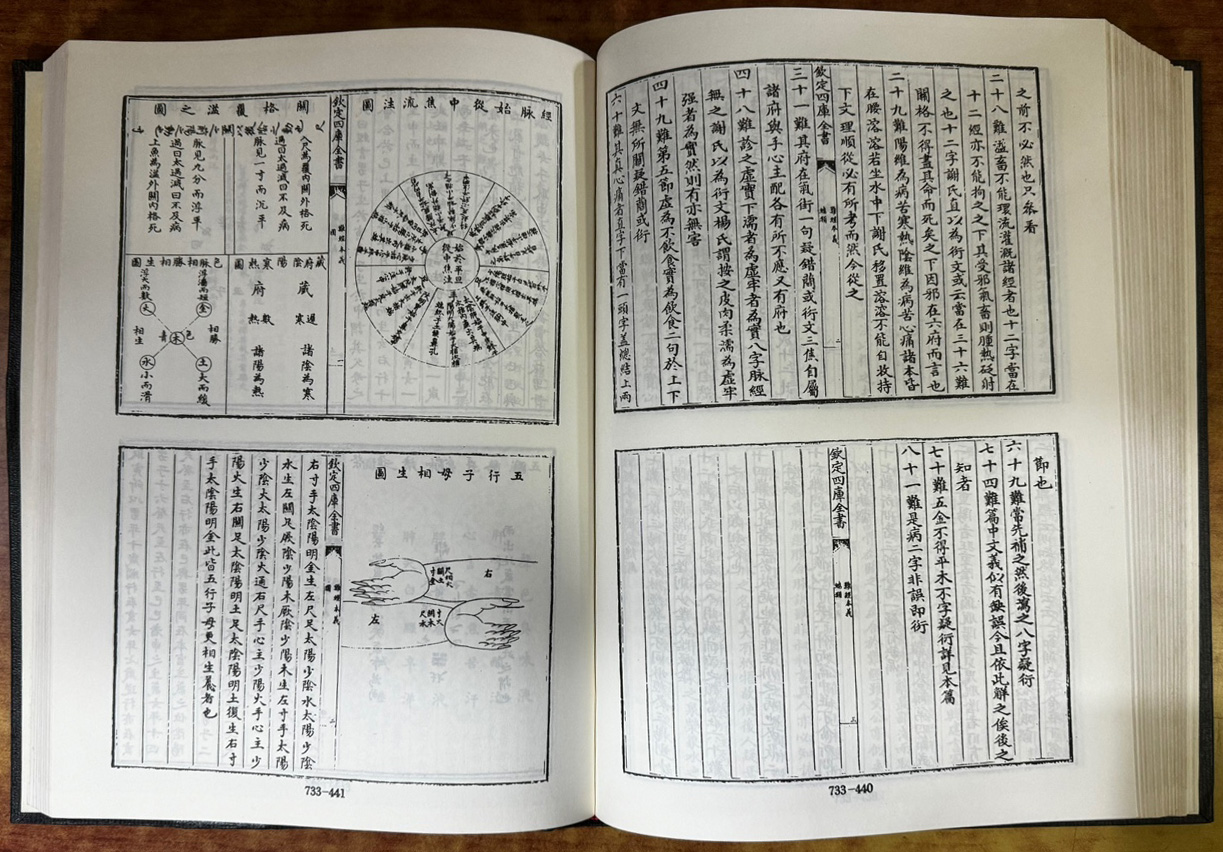 之前不必然也只參看
二十八難溢畜不能環流灌溉諸經者也十二字當在
十二經亦不能拘之之下其受邪氣畜則腫熱砭射
之也十二字謝氏直以為衍文或云當在三十六難
關格不得盡其命而死矣之下因邪在六府而言也
二十九難陽維為病苦寒熱陰維為病苦心痛諸本皆
在腰溶溶若坐水中下謝氏移置溶溶不能自收持
下文理順從必有所考而然今從之
欽定四庫全書
難經本義
三十一難其府在氣街一句疑錯簡或衍文三焦自屬
諸府與手心主配各有所不應又有府也
四十八難診之虛實下濡者為虛牢者為實八字脈經
無之謝氏以為衍文楊氏謂按之皮肉柔濡為虛牢
强者為實然則有亦無害
四十九難第五節虛為不飲食實為飲食二句於上下
文無所關疑錯簡或衍
六十難其真心痛者真字下當有一頭字蓋總結上兩
節也
六十九難當先補之然後瀉之八字疑衍
七十四難篇中文義似有缺誤今且依此解之俟後之
知者
七十難五金不得平木不字疑衍詳見本篇
八十一難是病二字非誤即衍
欽定四庫全書
難經本義
733-440
經脈始從中焦流注圖
始於平旦
從中焦注
欽定四庫全書
難經本義
圖
關格覆溢之圖
入尺為覆內關外格死
過曰太過減曰不及病
脈見一寸而沉平
脈見九分而浮平
過曰太過減曰不及病
上魚為溢外關內格死
藏府陰陽寒熱圖
藏 遲 寒 諸陰為寒
府 數 熱 諸陽為熱
色脈相勝相生圖
浮濇而短
金
浮大而數
火
相勝
相生
青
木
色
土
大而緩
水
小而滑
五行子母相生圖
右
尺相火
關土
寸金
左
寸火
關木
尺水
欽定四庫全書
難經本義
圖
右寸手太陰陽明金生左尺足太陽少陰水太陽少陰
水生左關足厥陰少陽木厥陰少陽木生左寸手太陽
少陰火太陽少陰火通右尺手心主少陽火手心主少
陽火生右關足太陰陽明土足太陰陽明土復生右寸
手太陰陽明金此皆五行子母更相生養者也
733-441